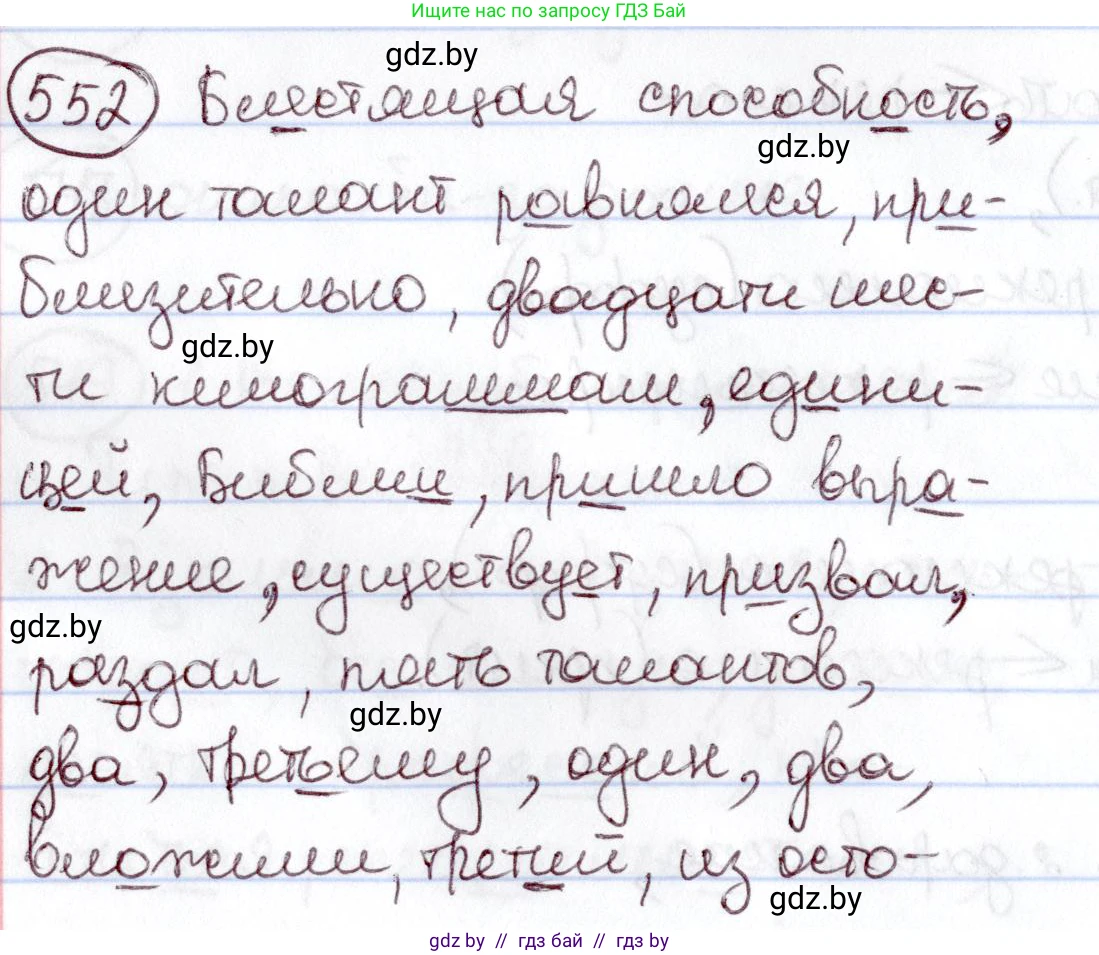 Ищите нас по запросу ГДЗ Бай
gdz.by
552 Блестящая способность,
gdz.by
один талант равнялся, при-
близительно, двадцати шес-
gdz.by
ти килограммам, едини-
цей, Библии, пришло выра-
жение, существует, призвал,
gdz.by
раздал, пять талантов,
gdz.by
два, третьему, один, два,
вложили, третий, из осто-
gdz.by
gdz by // гдз бай // гдз by